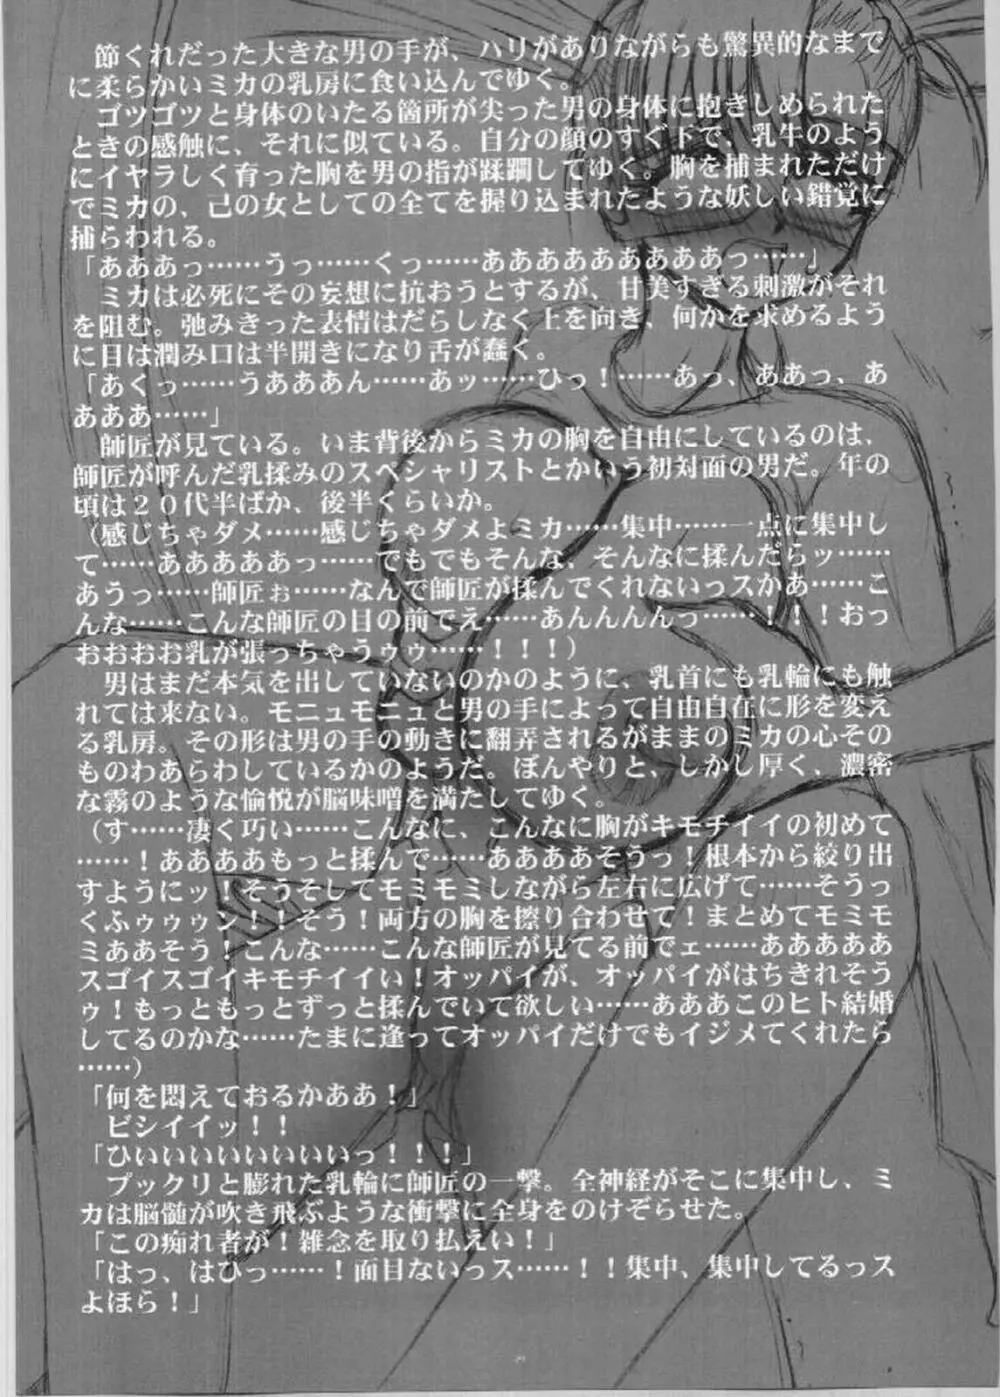 節くれだった大きな男の手が、ハリがありながらも驚異的なまで
に柔らかいミカの乳房に食い込んでゆく。
ゴツゴツと身体のいたる箇所が尖った男の身体に抱きしめられた
ときの感触に、それに似ている。自分の顔のすぐ下で、乳牛のよう
にイヤラしく育った胸を男の指が蹂躙してゆく。胸を捕まれただけ
でミカの、己の女としての全てを握り込まれたような妖しい錯覚に
捕らわれる。
「あああっ……うっ……くっ……ああああああああああっ……」
ミカは必死にその妄想に抗おうとするが、甘美すぎる刺激がそれ
を阻む。弛みきった表情はだらしなく上を向き、何かを求めるよう
に目は潤み口は半開きになり舌が蠢く。
「あくっ……うあああん……あッ……ひっ！……あっ、ああっ、あ
あああ……」
師匠が見ている。いま背後からミカの胸を自由にしているのは、
師匠が呼んだ乳揉みのスペシャリストとかいう初対面の男だ。年の
頃は２０代半ばか、後半くらいか。
（感じちゃダメ……感じちゃダメよミカ……集中……一点に集中し
て……ああああああっ……でもでもそんな、そんなに揉んだらッ……
あうっ……師匠ぉ……なんで師匠が揉んでくれないっスかあ……こ
んな……こんな師匠の目の前でえ……あんんんんっ……！！！おっ
おおおおお乳が張っちゃうゥゥ……！！！）
男はまだ本気を出していないのかのように、乳首にも乳輪にも触
れては来ない。モニュモニュと男の手によって自由自在に形を変え
る乳房。その形は男の手の動きに翻弄されるがままのミカの心その
ものわあらわしているかのようだ。ぼんやりと、しかし厚く、濃密
な霧のような愉悦が脳味噌を満たしてゆく。
（す……凄く巧い……こんなに、こんなに胸がキモチイイの初めて
……！ああああもっと揉んで……ああああそうっ！根本から絞り出
すようにッ！そうそしてモミモミしながら左右に広げて……そうっ
くふゥゥゥン！！そう！両方の胸を擦り合わせて！まとめてモミモ
ミああそう！こんな……こんな師匠が見てる前でェ……ああああああ
スゴイスゴイキモチイイい！オッパイが、オッパイがはちきれそう
ゥ！もっともっとずっと揉んでいて欲しい……あああこのヒト結婚
してるのかな……たまに逢ってオッパイだけでもイジメてくれたら
……）
「何を悶えておるかああ！」
ビシイイッ！！
「ひいいいいいいいいっ！！！」
プックリと膨れた乳輪に師匠の一撃。全神経がそこに集中し、ミ
カは脳髄が吹き飛ぶような衝撃に全身をのけぞらせた。
「この痴れ者が！雑念を取り払えい！」
「はっ、はひっ……！面目ないっス……！！集中、集中してるっス
よほら！」